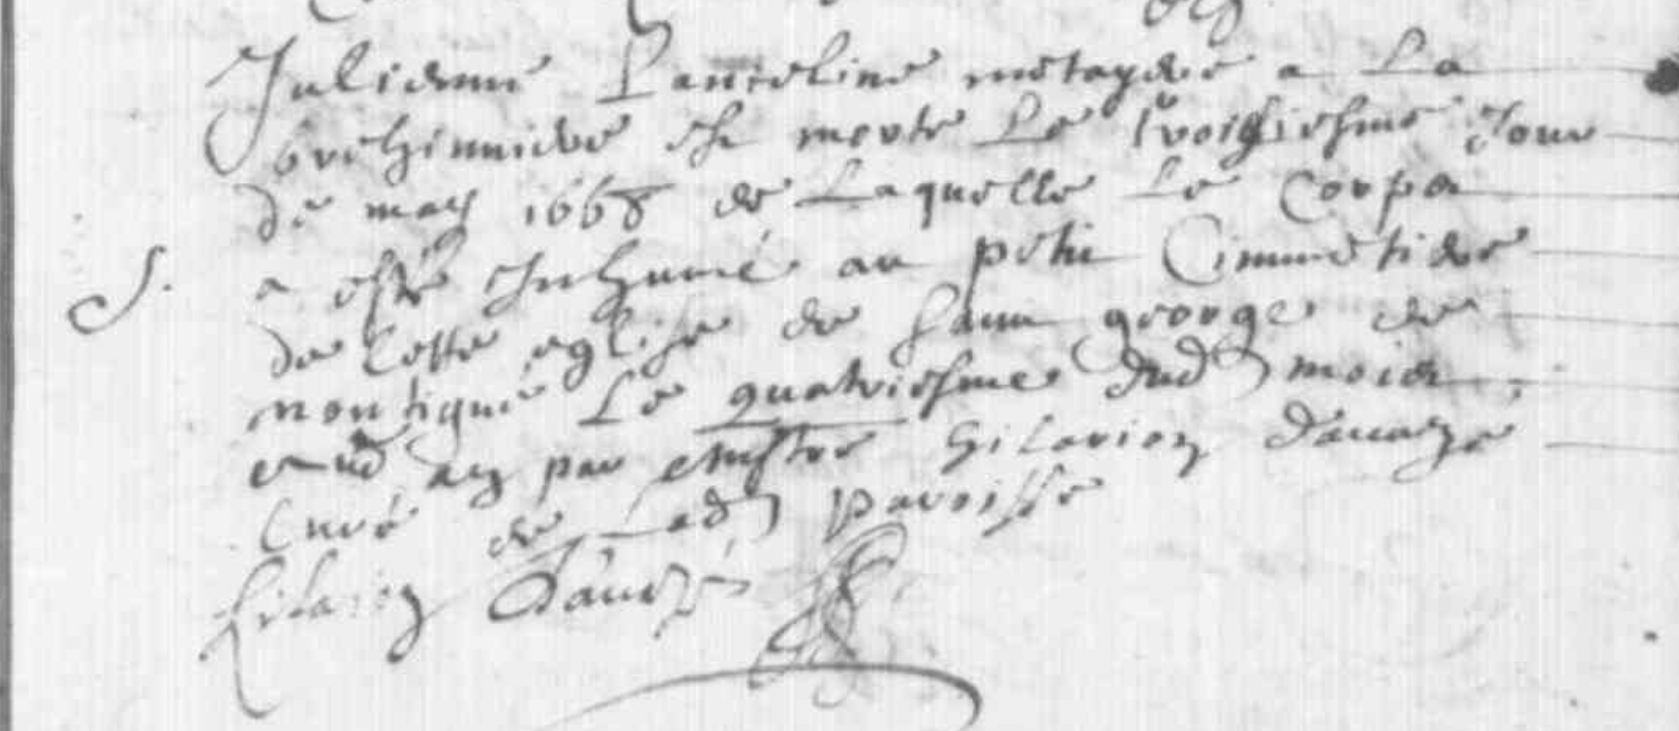 Julienne Lanceline metayere a La
brehinniere est morte Le troisiesme Jour
de may 1668 de Laquelle Le Corps
S. a esté Inhumé au petit Cimmetiere
de Cette eglise de Saint george de
montigné Le quatriesme dud moies
aud an par Messire hilarion
Curé de Lad paroisse
hilarion